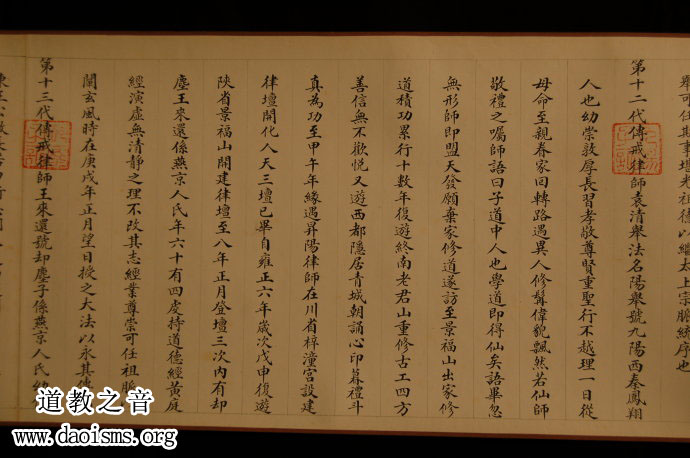 舉可任其事壇未祖後以繼太上宗脈經序也
第十二代傳戒律師袁清舉法名陽舉號九陽西秦鳳翔
人也幼崇敦厚長習孝敬尊賢重聖行不越理一日從
母命至親眷家回轉路遇異人修髯偉貌飄然若仙師
敬禮之囑師語曰子道中人也學道即得仙矣語畢忽
無形師即盟天發願棄家修道遂訪至景福山出家修
道積功累行十數年復遊終南老君山重修古工四方
善信無不歡悅又遊西都隱居青城朝誦心印暮禮斗
真為功至甲午年緣遇昇陽律師在川省梓潼宮設建
律壇開化人天三壇已畢自雍正六年歲次戊申復遊
陝省景福山開建律壇至八年正月登壇三次內有却
塵王來還係燕京人氏年六十有四處持道德經黃庭
經演虛無清靜之理不改其志經業尊崇可任祖脈
闡玄風時在庚戌年正月望日授之大法以永其
第十三代傳戒律師王來還號却塵子係燕京人氏
道教之音
www.daoisms.org